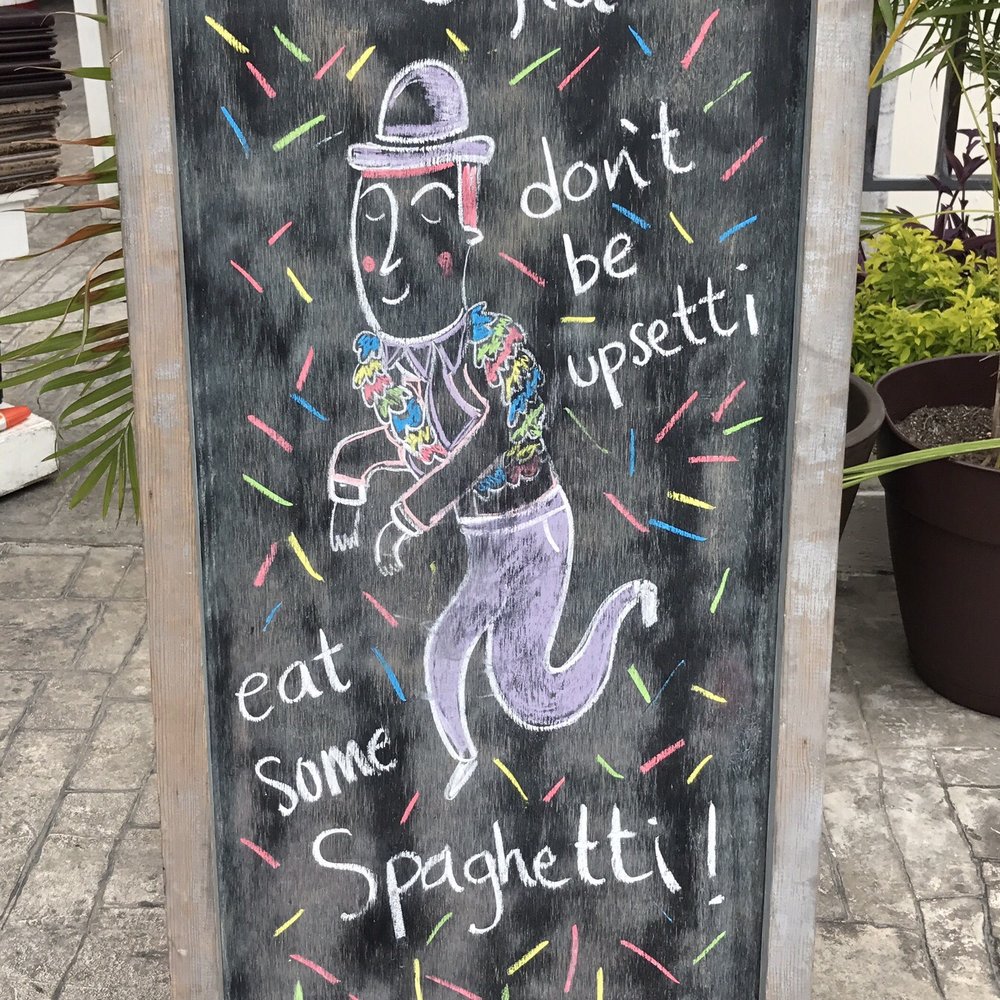 don't
be
upsetti
eat
some
Spaghetti!